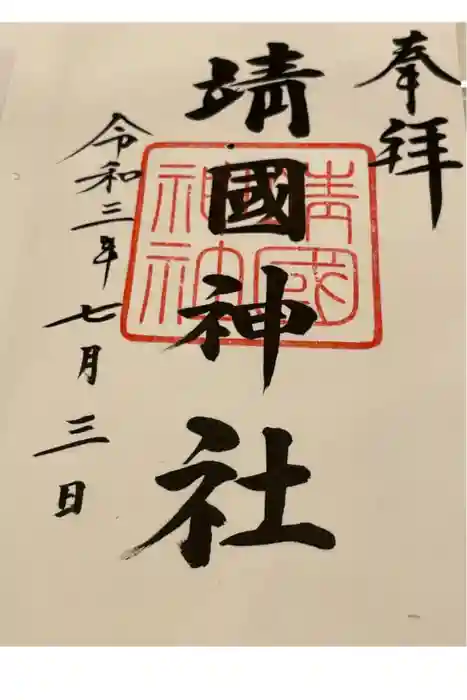 奉拝
靖國神社
靖國
神社
令和三年七月三日